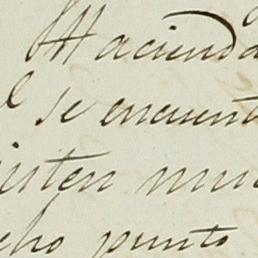 Hacienda
l se encuent
isten mu
cho punto